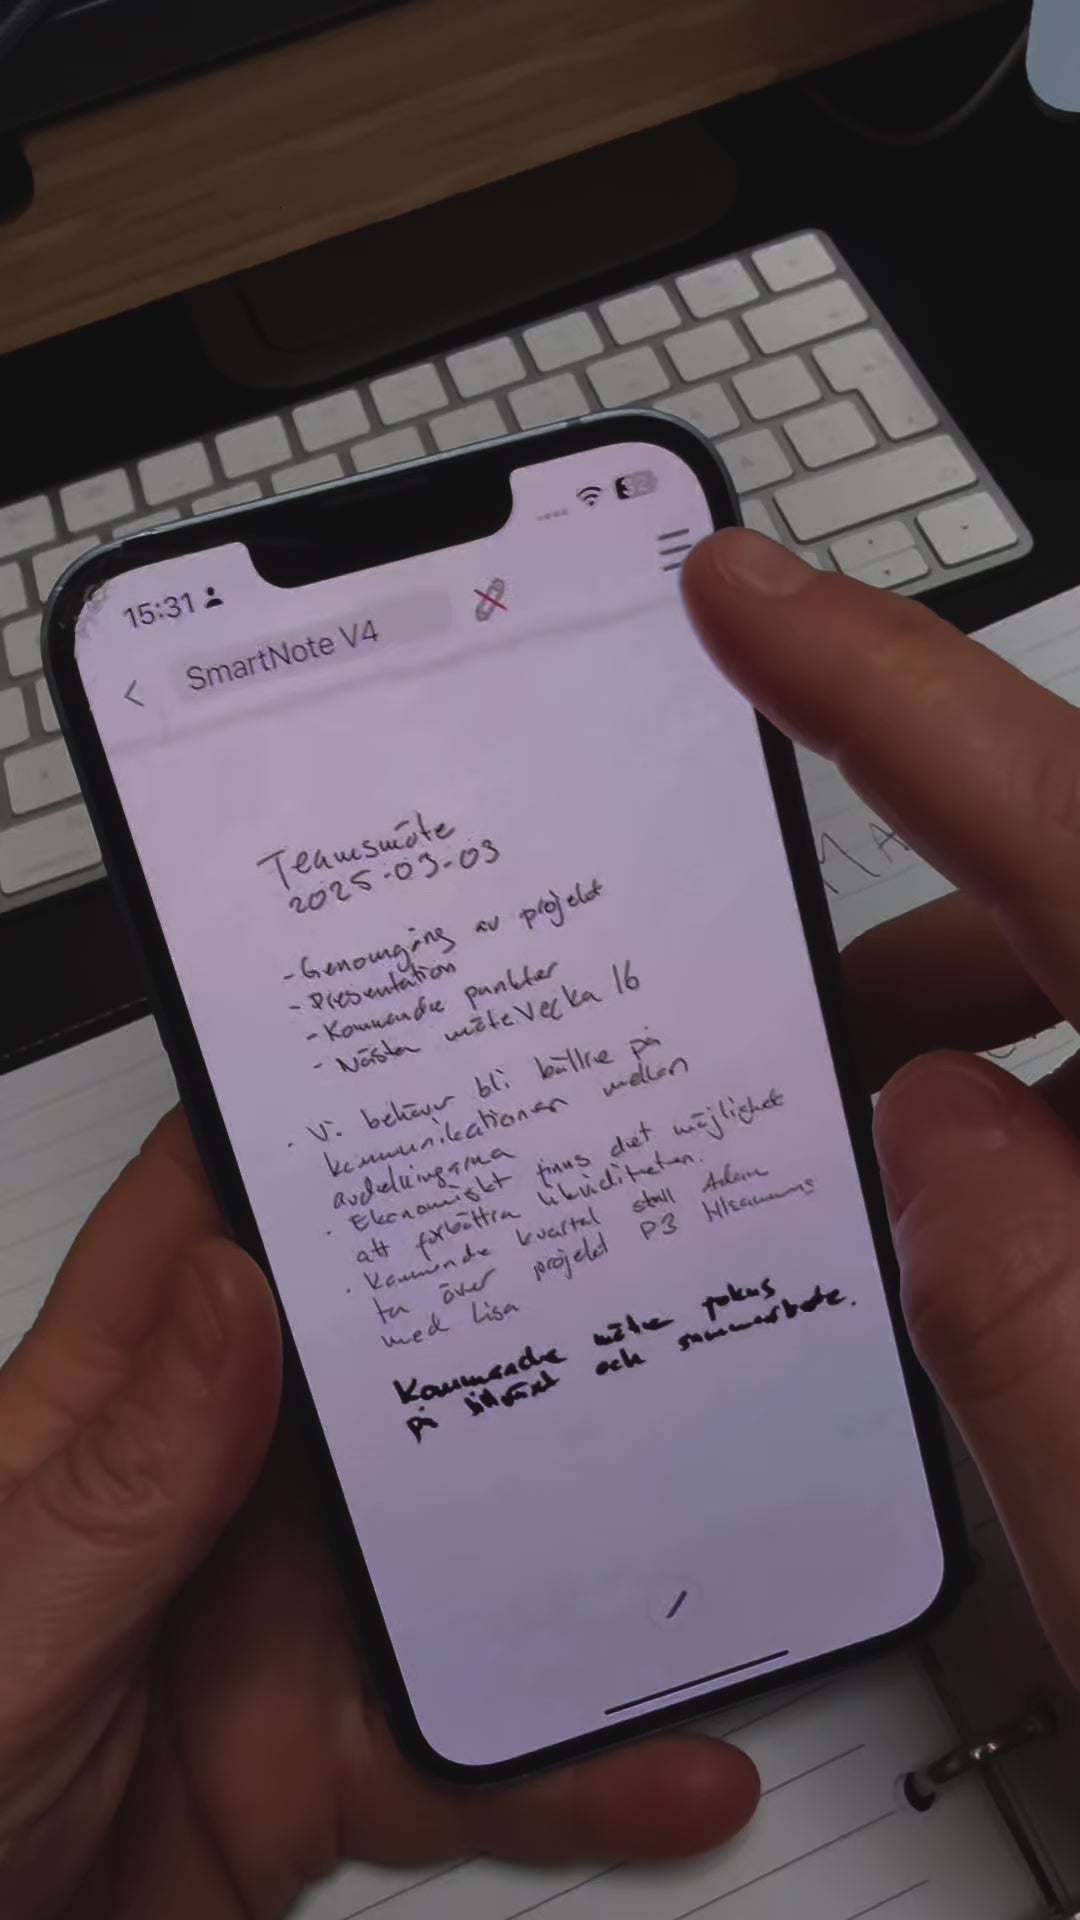 15:31
32
SmartNote V4
Teamsmöte
2025-03-03
- Genomgång av projekt
- Presentation
- Kommande punkter
- Nästa möte Vecka 16
· Vi behöver bli bättre på
kommunikationen mellan
avdelningarna
· Ekonomiskt finns det möjlighet
att förbättra likviditeten.
· Kommande kvartal skall Adam
ta över projekt P3
med Lisa
Kommande möte fokus
på tillväxt och samarbete.
MA